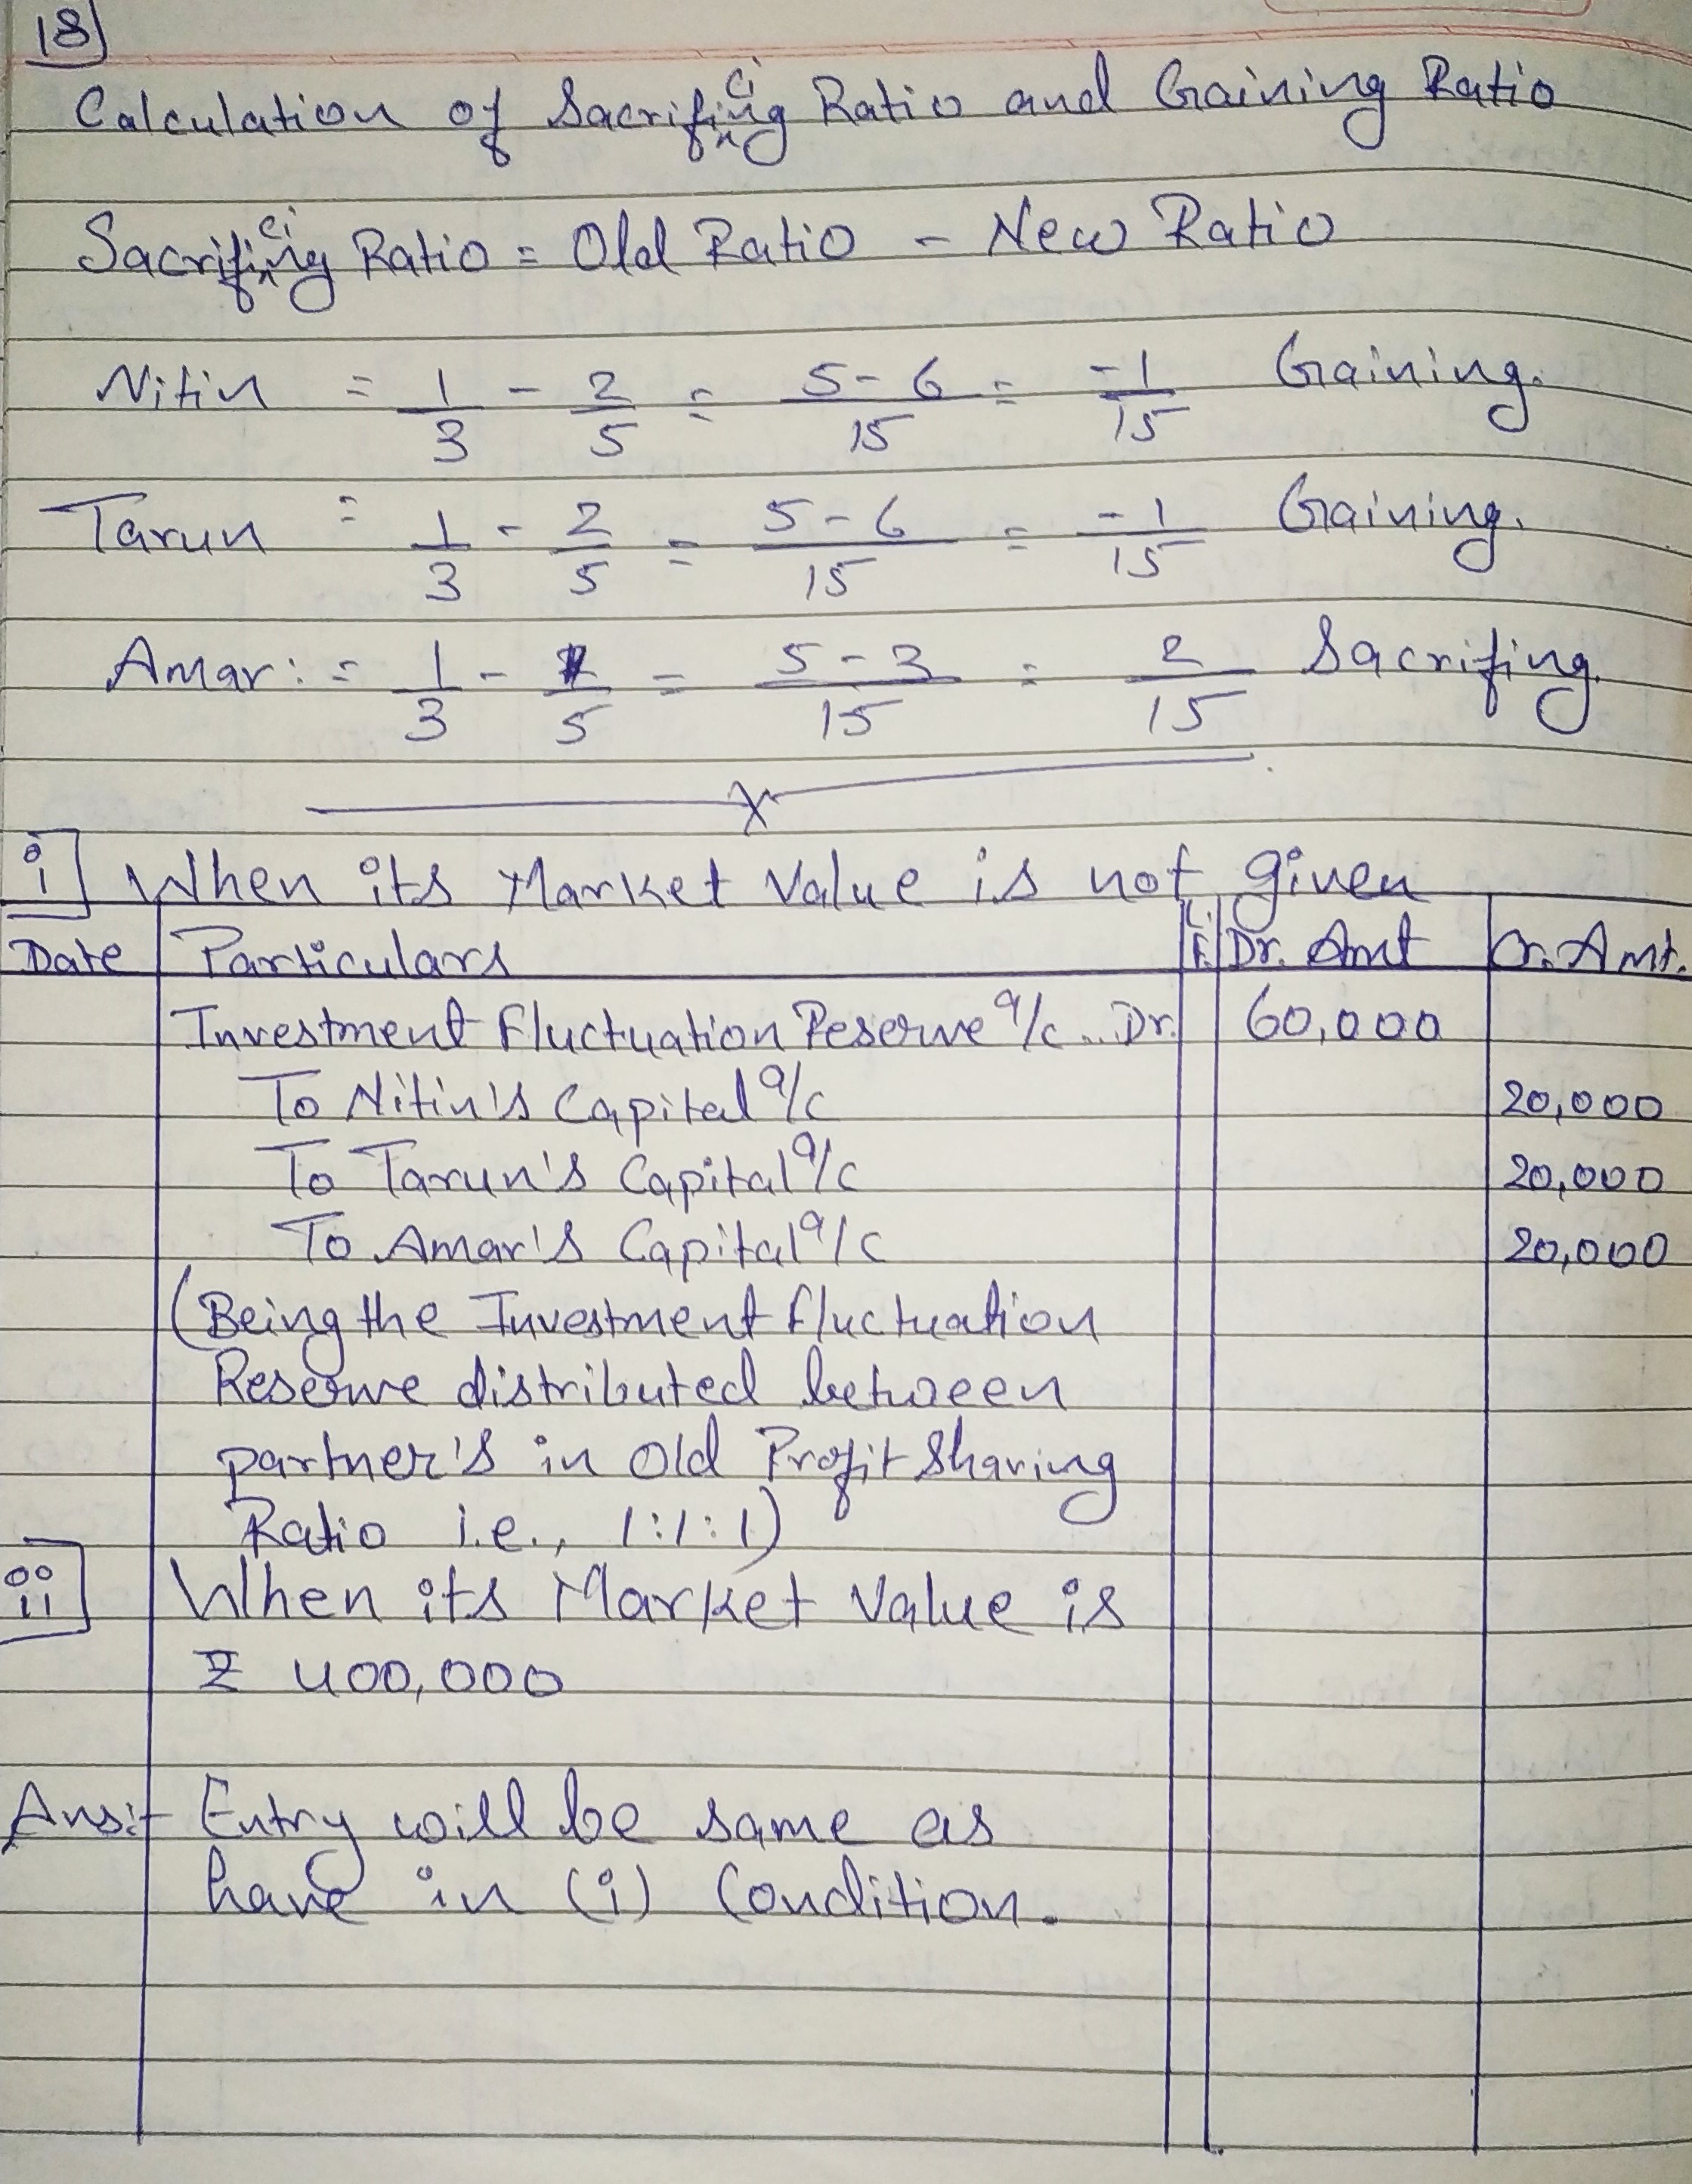 18
Calculation of Sacrificing Ratio and Gaining Ratio
Sacrificing Ratio = Old Ratio - New Ratio
Nitin = 1/3 - 2/5 = 5-6/15 = -1/15 Gaining.
Tarun = 1/3 - 2/5 = 5-6/15 = -1/15 Gaining.
Amar: = 1/3 - 1/5 = 5-3/15 = 2/15 Sacrifing.
i] When its Market Value is not given
Date Particulars L.F. Dr. Amt Cr. Amt.
Investment Fluctuation Reserve a/c .. Dr. 60,000
To Nitin's Capital a/c 20,000
To Tarun's Capital a/c 20,000
To Amar's Capital a/c 20,000
(Being the Investment Fluctuation
Reserve distributed between
partner's in Old Profit Sharing
Ratio i.e., 1:1:1)
ii] When its Market Value is
₹ 400,000
Ans:- Entry will be same as
have in (i) Condition.